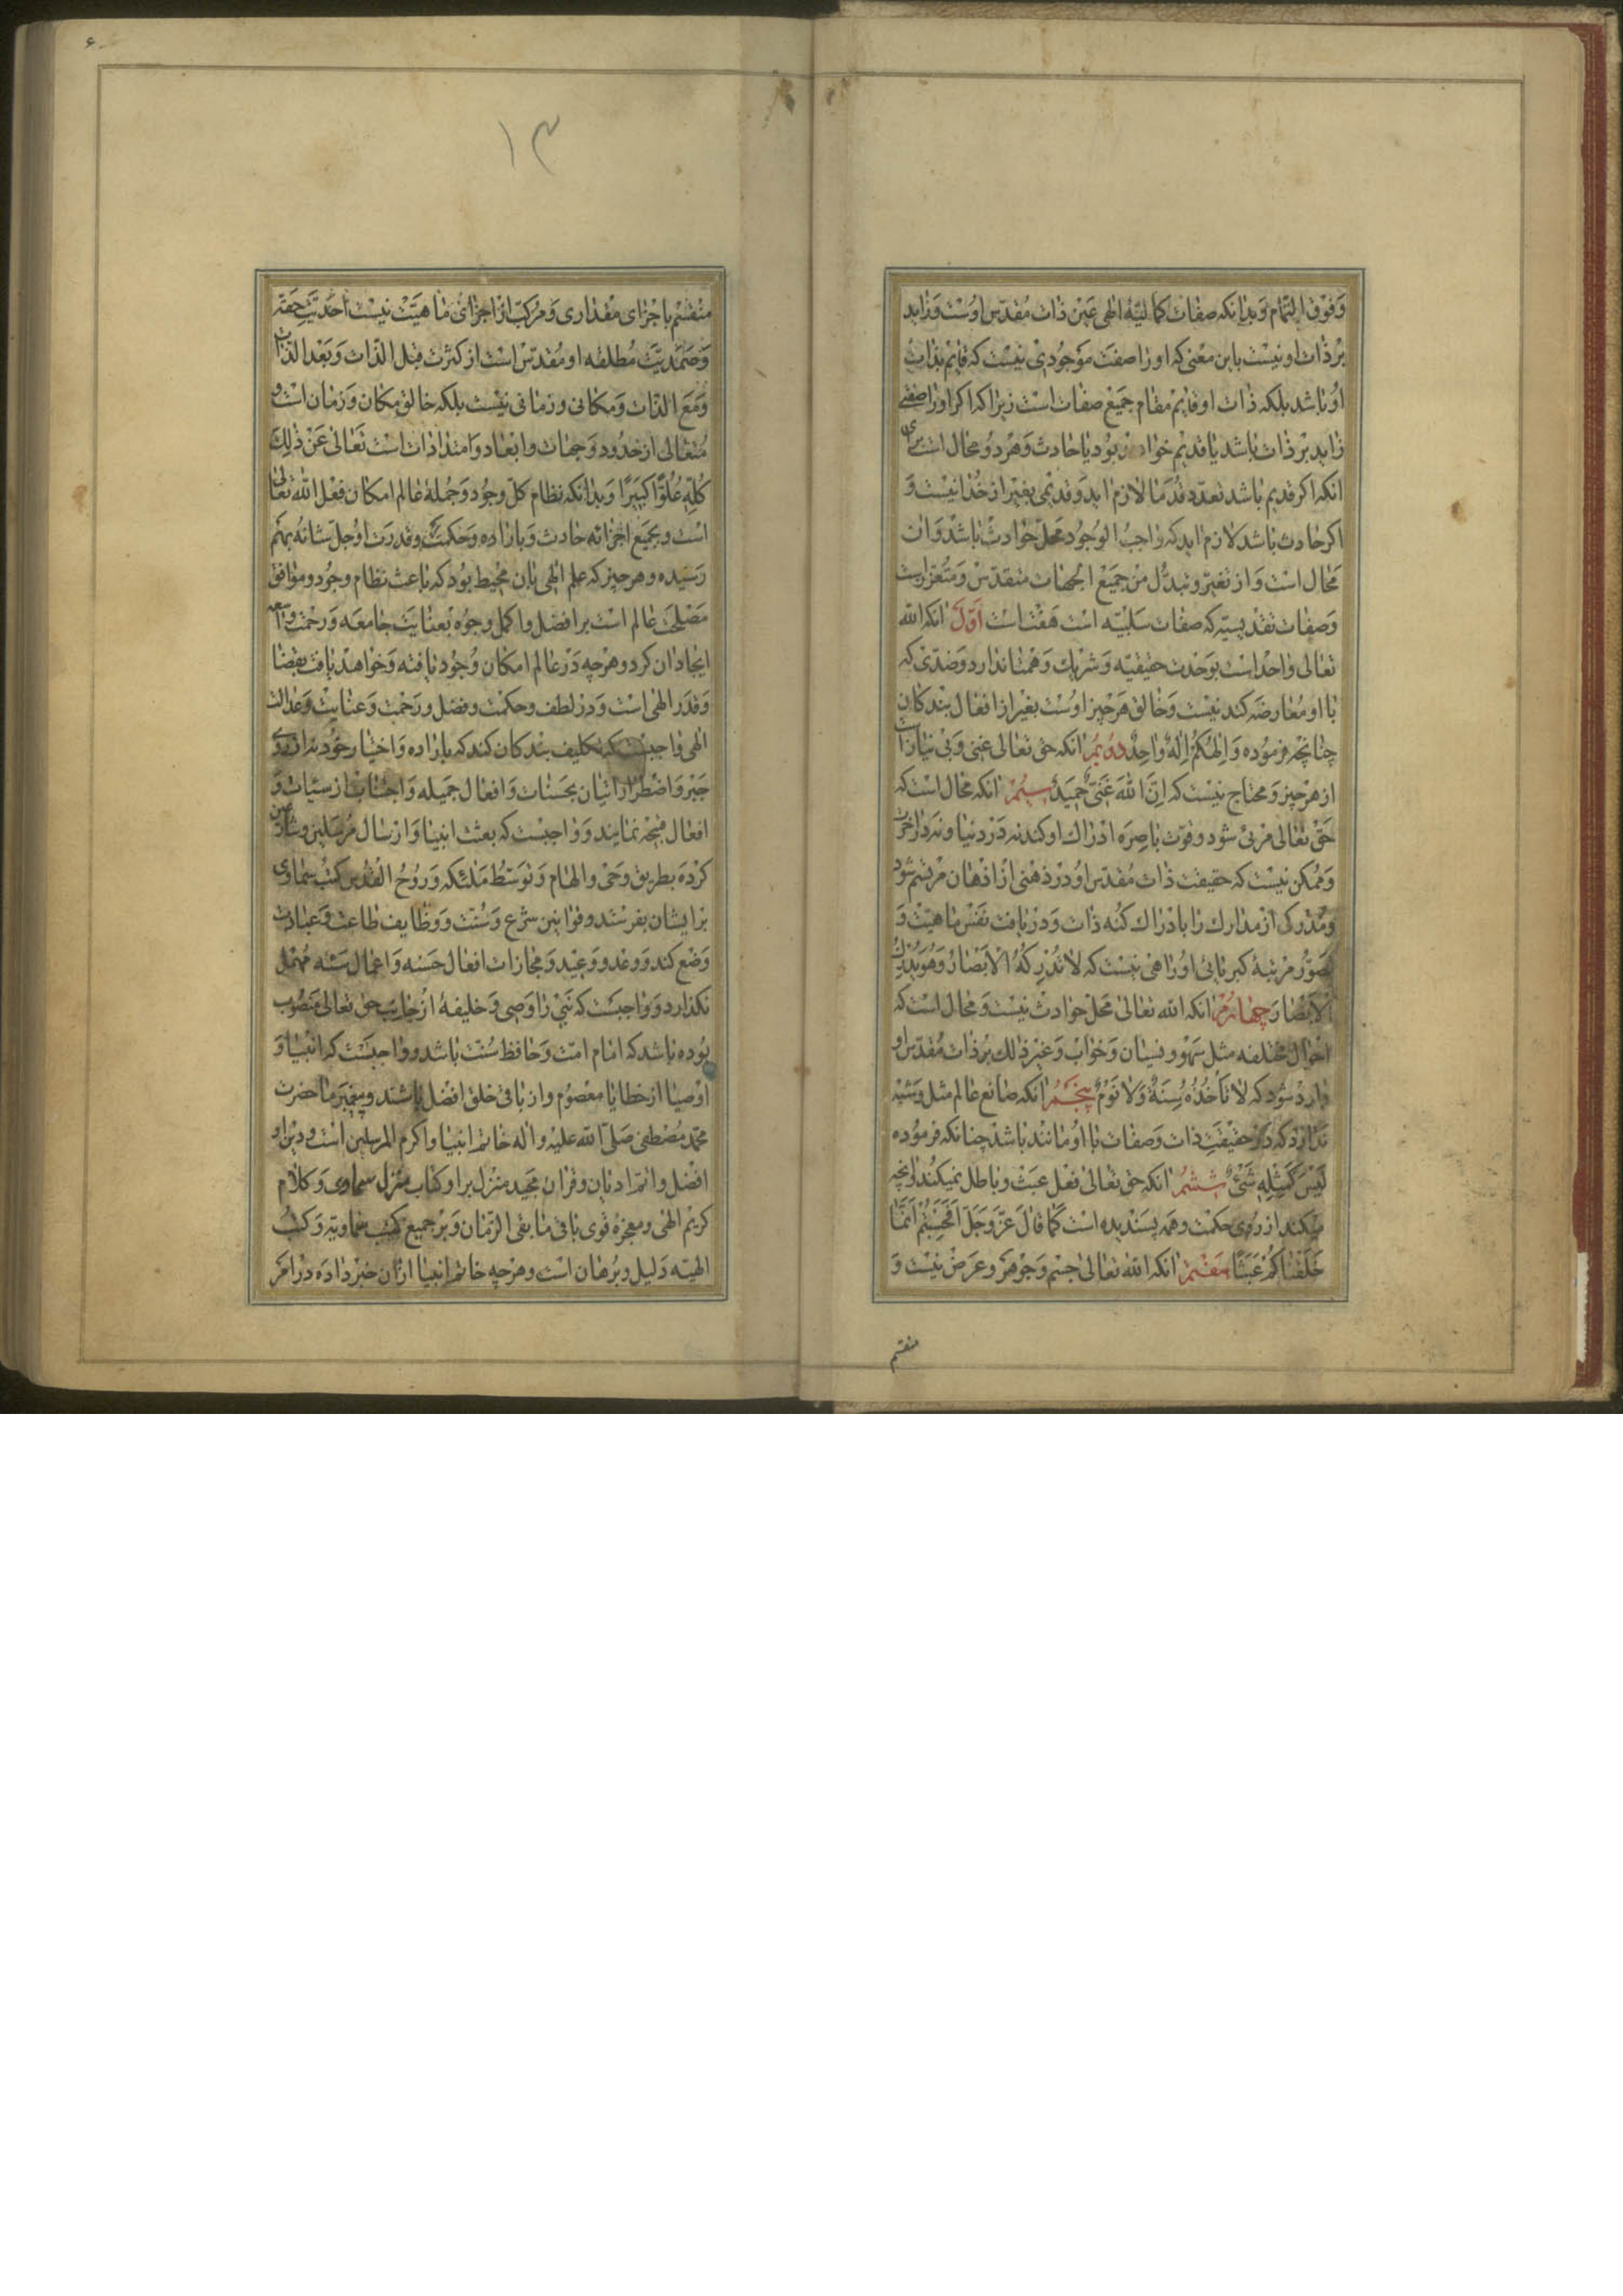 وَفَوْقَ التَّمام وَبدانكه صفات كماليّۀ الهى عَين ذات مُقدّس اوُست وَزايد
برْ ذات او نيست باين معنى كه او را صفت مَوجُودى نيست كه قايم بذات
اوُ باشد بلكه ذات او قايم مقام جميع صفات است زيرا كه اكر او را صفتى
زايد برْ ذات باشد يا قديم خواد بود يا حادث وَهرْ دوُ محال است براى
انكه اكر قديم باشد تعدّد قُدَما لازم ايد وَقديمى بغير از خُدا نيست وَ
اكر حادث باشد لازم ايد كه واجبُ الوُجُود محلّ حوادث باشد وَان
مَحال است وَاز تغيّر و تبدّل من جميع الجهات متقدّس وَمتعزّز است
وَصفات تقديسيّه كه صفات سَلبيّه است هَفت است اَوّل انكه الله
تعالى واحد است بوَحدت حقيقيّه وَشريك وَهمتا ندارد وَضدّى كه
با او مُعارضه كند نيست وَخالق هَرچيز اوُست بغير از افعال بندكان
چنانچه فرموُده وَاِلهُكُمْ اِلهٌ وَاحِدٌ دوُيمُ انكه حق تعالى غنى وَبى نياز است
از هرچيز وَمحتاج نيست كه اِنَّ اللهَ غَنىٌّ حَميدٌ سيُمْ انكه محال است كه
حَقّ تعالى مرئى شود و قوّت باصِرَه ادراك او كند نه دَر دنيا و نه در اخرت
وَمُمكن نيست كه حقيقت ذات مُقدّس اوُ درْ ذهنى از اذهان مرْتسم شود
وَمُدْركى از مدارك را با ادراك كُنه ذات وَدرْيافت نَفس ماهيّت وَ
تصوّر مرْتبۀ كبريائى اوُ راهى نيست كه لا تُدْرِكُهُ الْاَبْصارُ وَهُوَ يُدْرِكُ
الْاَبْصارَ چهارُمْ انكه الله تعالى محلّ حوادث نيست وَمحال است كه
احوال مختلفه مثل سَهْو و نسيان وَخواب وَغير ذلك برْ ذات مُقدّس او
وارد شود كه لا تَأخُذُهُ سِنَةٌ وَلا نَوْمٌ پنجمُ انكه صانع عالم مثل وَشبْه
ندارد كه درْ حقيقت ذات وَصفات با اوُ مانند باشد چنانكه فرموُده
لَيْسَ كَمِثْلِهِ شَىْءٌ ششمُ انكه حق تعالى فعل عبَث وَباطل نميكند وانچه
ميكند از رُوى حكمت وهمه پسَنديده است كَما قالَ عَزَّ وَجَلَّ اَفَحَسِبْتُمْ اَنَّما
خَلَقْناكُمْ عَبَثًا هفتم انكه الله تعالى جسْم وَجَوْهر وعرَض نيست وَ
منقسم
۶
۱۳
منقسم باجزاى مقدارى وَمرُكّب از اجزاى ماهيّت نيست احَديّت حقّه
وَصَمَديّت مُطلقه او مُقدّس است از كثرت قبل الذّات وَبَعْد الذّات
وَمَعَ الذّات وَمكانى و زمانى نيست بلكه خالق مكان وَزمان است و
مُتعالى از حُدود وَجهات و ابعاد و امتدادات است تَعالى عَنْ ذلِكَ
كُلِّهِ عُلُوًّا كَبيرًا وَبدانكه نظام كلّ وجوُد وَجُملۀ عالم امكان فعْل الله تعالى
است و بجميع اجزائه حادث وَباراده وَحكمت وقدرت او جلّ شانهُ بهم
رَسيده و هرچيز كه علم الهى بان محيط بوُد كه باعث نظام وجوُد و موافق
مَصْلحَت عالم است بر افضل و اكمل وجوُه بعنايت جامعه وَرحْمت واسعه
ايجاد ان كرد و هرچه درْ عالم امكان وُجُود يافته وَخواهد يافت بقضا
وَقدَر الهى است وَدرْ لطف و حكمت و فضل و رَحْمت وَعنايت وَعدالت
الهى واجبست كه تكليف بندكان كند كه باراده وَاختيار خوُد نه از روى
جَبْر وَاضطرار اتيان بحَسَنات وَافعال جميله وَاجتناب از سيّئات وَ
افعال قبيحه نمايند وَواجبست كه بعث انبيا وَارْسال مُرسَلين و شارعين
كرْدَه بطريق وَحْى و الهام وَتوَسّط مَلئكه وَروُحُ القُدُس كتب سماوى
برْ ايشان بفرْستد و قوانين شرْع وَسُنّت وَوظايف طاعت وَعبادت
وَضع كند وَوَعْد و وَعيْد وَمجازات افعال حَسَنه وَاعمال سَيّئه مُهْمل
نكذارد وَواجبَست كه نَبى را وَصى وَخليفۀ از جانب حق تعالى مَنصُوب
بوُده باشد كه امام امّت وَحافظ سُنّت باشد وواجبَست كه انبيا وَ
اوْصيا از خطايا معصُوم و از باقى خلق افضل باشند وپيغمبَر ما حضرت
محمّد مُصْطفى صَلّى الله عليْه و اله خاتم انبيا و اكرم المرسلين است و دين او
افضل و اتمّ اديان و قران مجيد منزل بر او كتاب منزل سماوى وَكلام
كريم الهى و معجزۀ قوى باقى ما بقى الزّمان وَبرْ جميع كتب سماويّه وَكتُب
الهيّه دَليل و برْهان است و هرْچه خاتم انبيا ازان خبر داده درْ امر